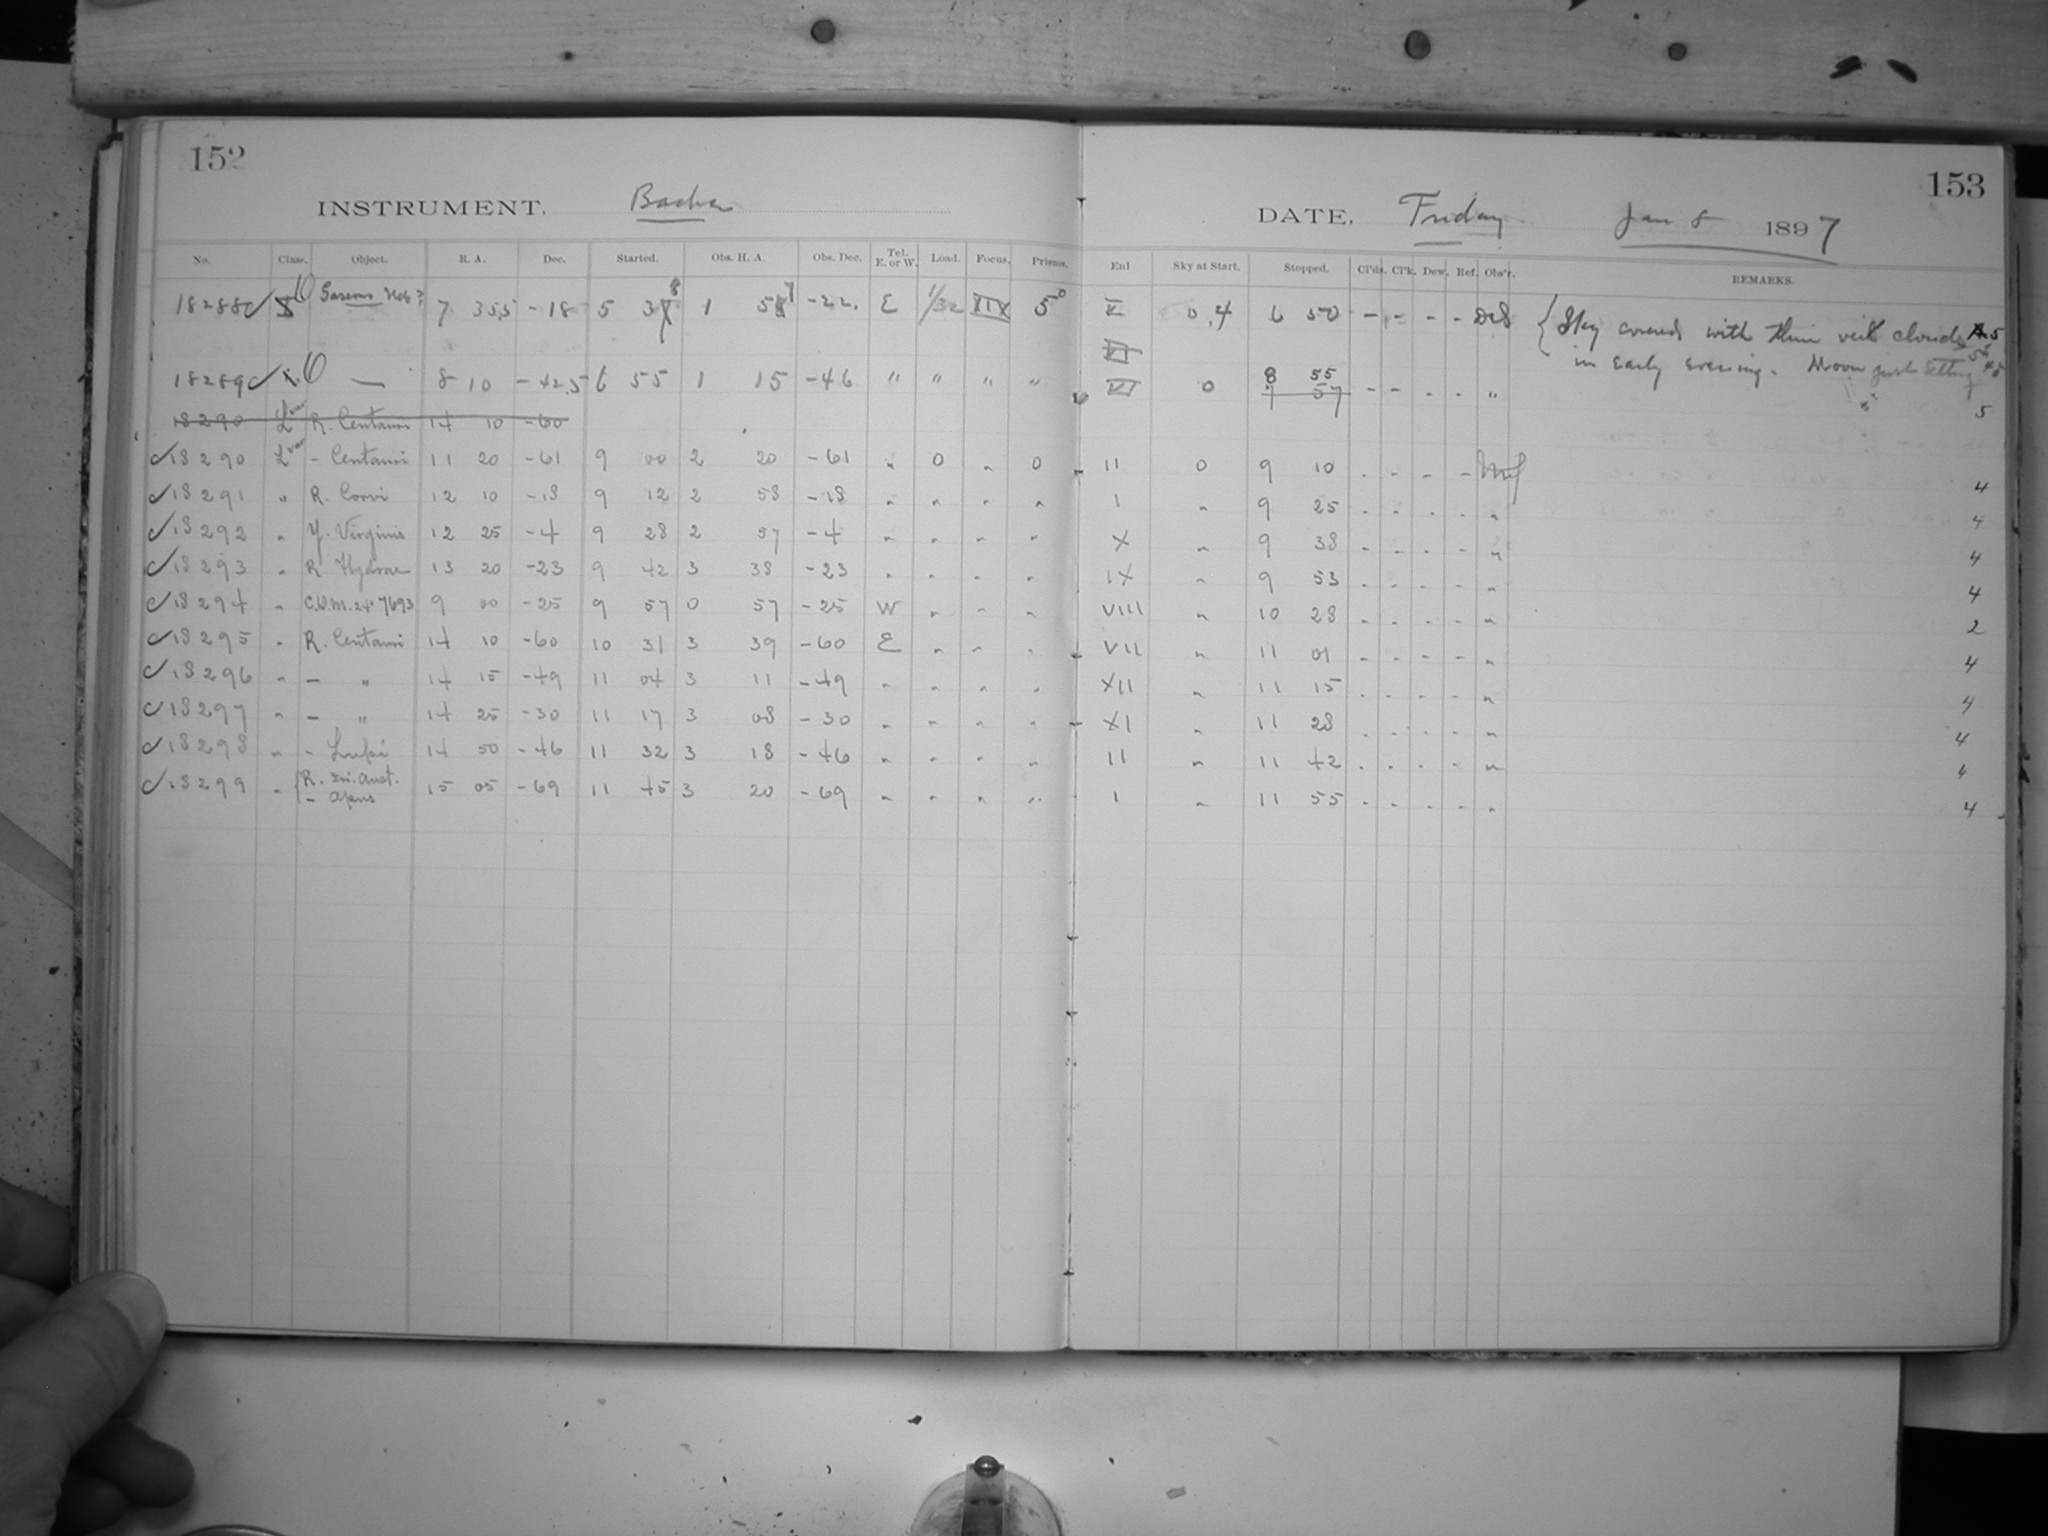 152
INSTRUMENT. Bache
No. Class. Object. R. A. Dec. Started. Obs. H. A. Obs. Dec. Tel. E. or W. Load. Focus. Prisms.
18288 7 35.5 -18 5 38 1 57 -22. E 1/32 5°
18289 — 8 10 -42.5 6 55 1 15 -46 " " " "
18290 R. Centauri 14 10 -60
✓18290 L var - Centauri 11 20 -61 9 00 2 20 -61 " 0 " 0
✓18291 " R. Corvi 12 10 -18 9 12 2 58 -18 " " " "
✓18292 " Y. Virginis 12 25 -4 9 28 2 57 -4 " " " "
✓18293 " R Hydrae 13 20 -23 9 42 3 38 -23 " " " "
✓18294 " C.D.M. 24° 7693 9 00 -25 9 57 0 57 -25 W " " "
✓18295 " R. Centauri 14 10 -60 10 31 3 39 -60 E " " "
✓18296 " - " 14 15 -49 11 04 3 11 -49 " " " "
✓18297 " - " 14 25 -30 11 17 3 08 -30 " " " "
✓18298 " - Lupi 14 50 -46 11 32 3 18 -46 " " " "
✓18299 " { R. Tri. Aust. - Apus 15 05 -69 11 45 3 20 -69 " " " "
153
DATE. Friday Jan 8 1897
Enl Sky at Start. Stopped. Cl'ds. Cl'k. Dew. Ref. Obs'r. REMARKS.
V 0.4 6 50 - - - - { Sky covered with thin veil clouds
in early evening. Moon just setting
VI 0 8 55 - - - - "
7 57
5
II 0 9 10 - - - - 4
I " 9 25 - - - - " 4
X " 9 38 - - - - " 4
IX " 9 53 - - - - " 4
VIII " 10 28 - - - - " 2
VII " 11 01 - - - - " 4
XII " 11 15 - - - - " 4
XI " 11 28 - - - - " 4
II " 11 42 - - - - " 4
I " 11 55 - - - - " 4